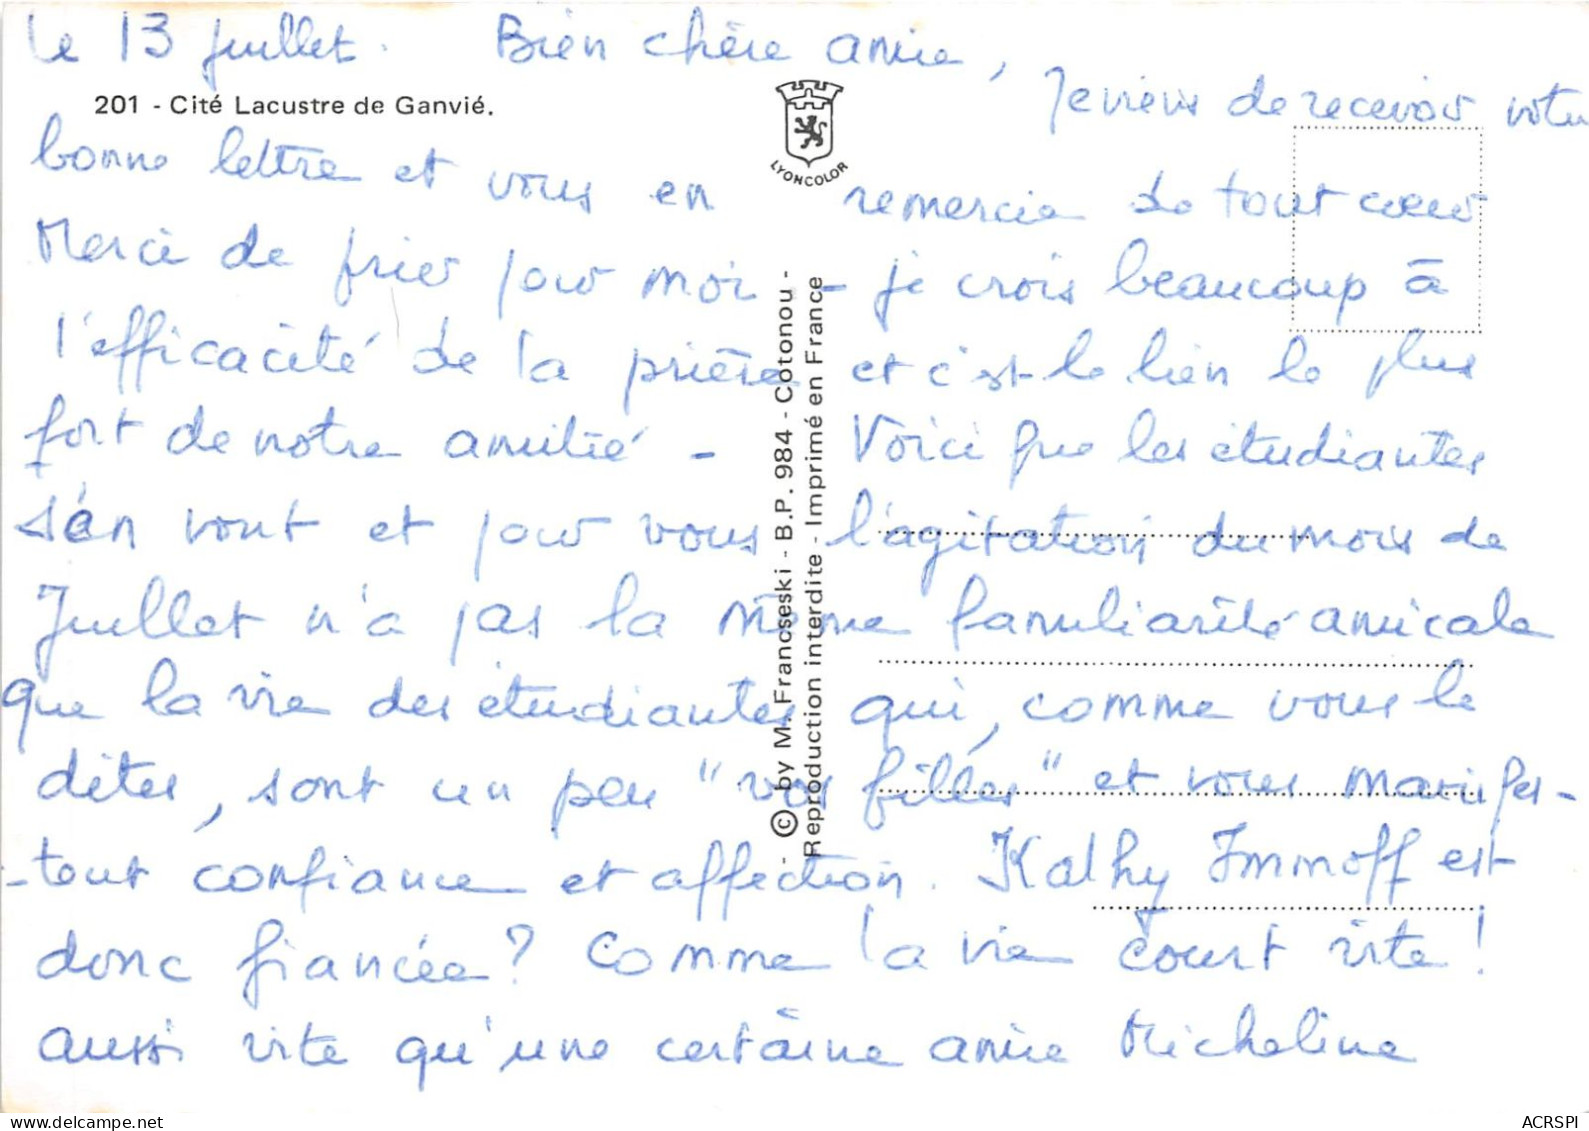 le 13 juillet. Bien chère amie,
Je viens de recevoir votre
201 - Cité Lacustre de Ganvié.
LYONCOLOR
bonne lettre et vous en remercie de tout coeur
Merci de prier pour moi - je crois beaucoup à
l'efficacité de la prière et c'est le lien le plus
fort de notre amitié - Voici que les étudiantes
s'en vont et pour vous l'agitation du mois de
Juillet n'a pas la même familiarité amicale
que la vie des étudiantes qui, comme vous le
dites, sont un peu "vos filles" et vous manifes-
-tent confiance et affection. Kathy Immoff est
donc fiancée? Comme la vie court vite!
aussi vite qu'une certaine amie Micheline
- © by M. Francseski - B.P. 984 - Cotonou -
Reproduction interdite - Imprimé en France
ACRSPI